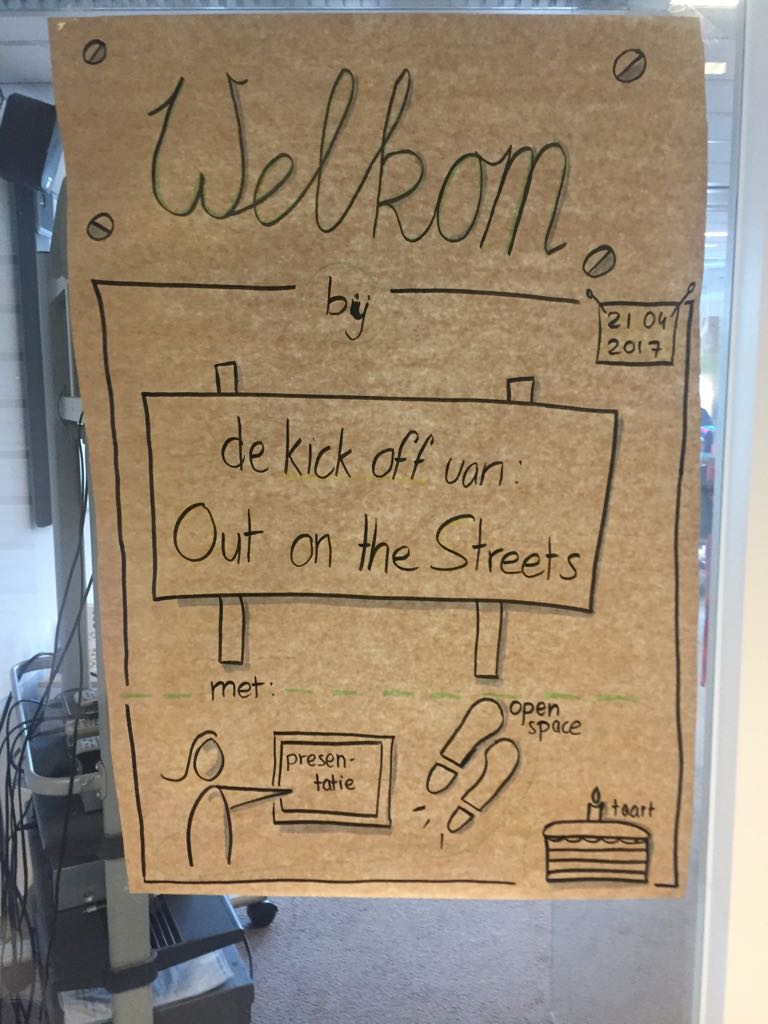 Welkom
bij
21 04
2017
de kick off van:
Out on the Streets
met:
presen-
tatie
open
space
taart